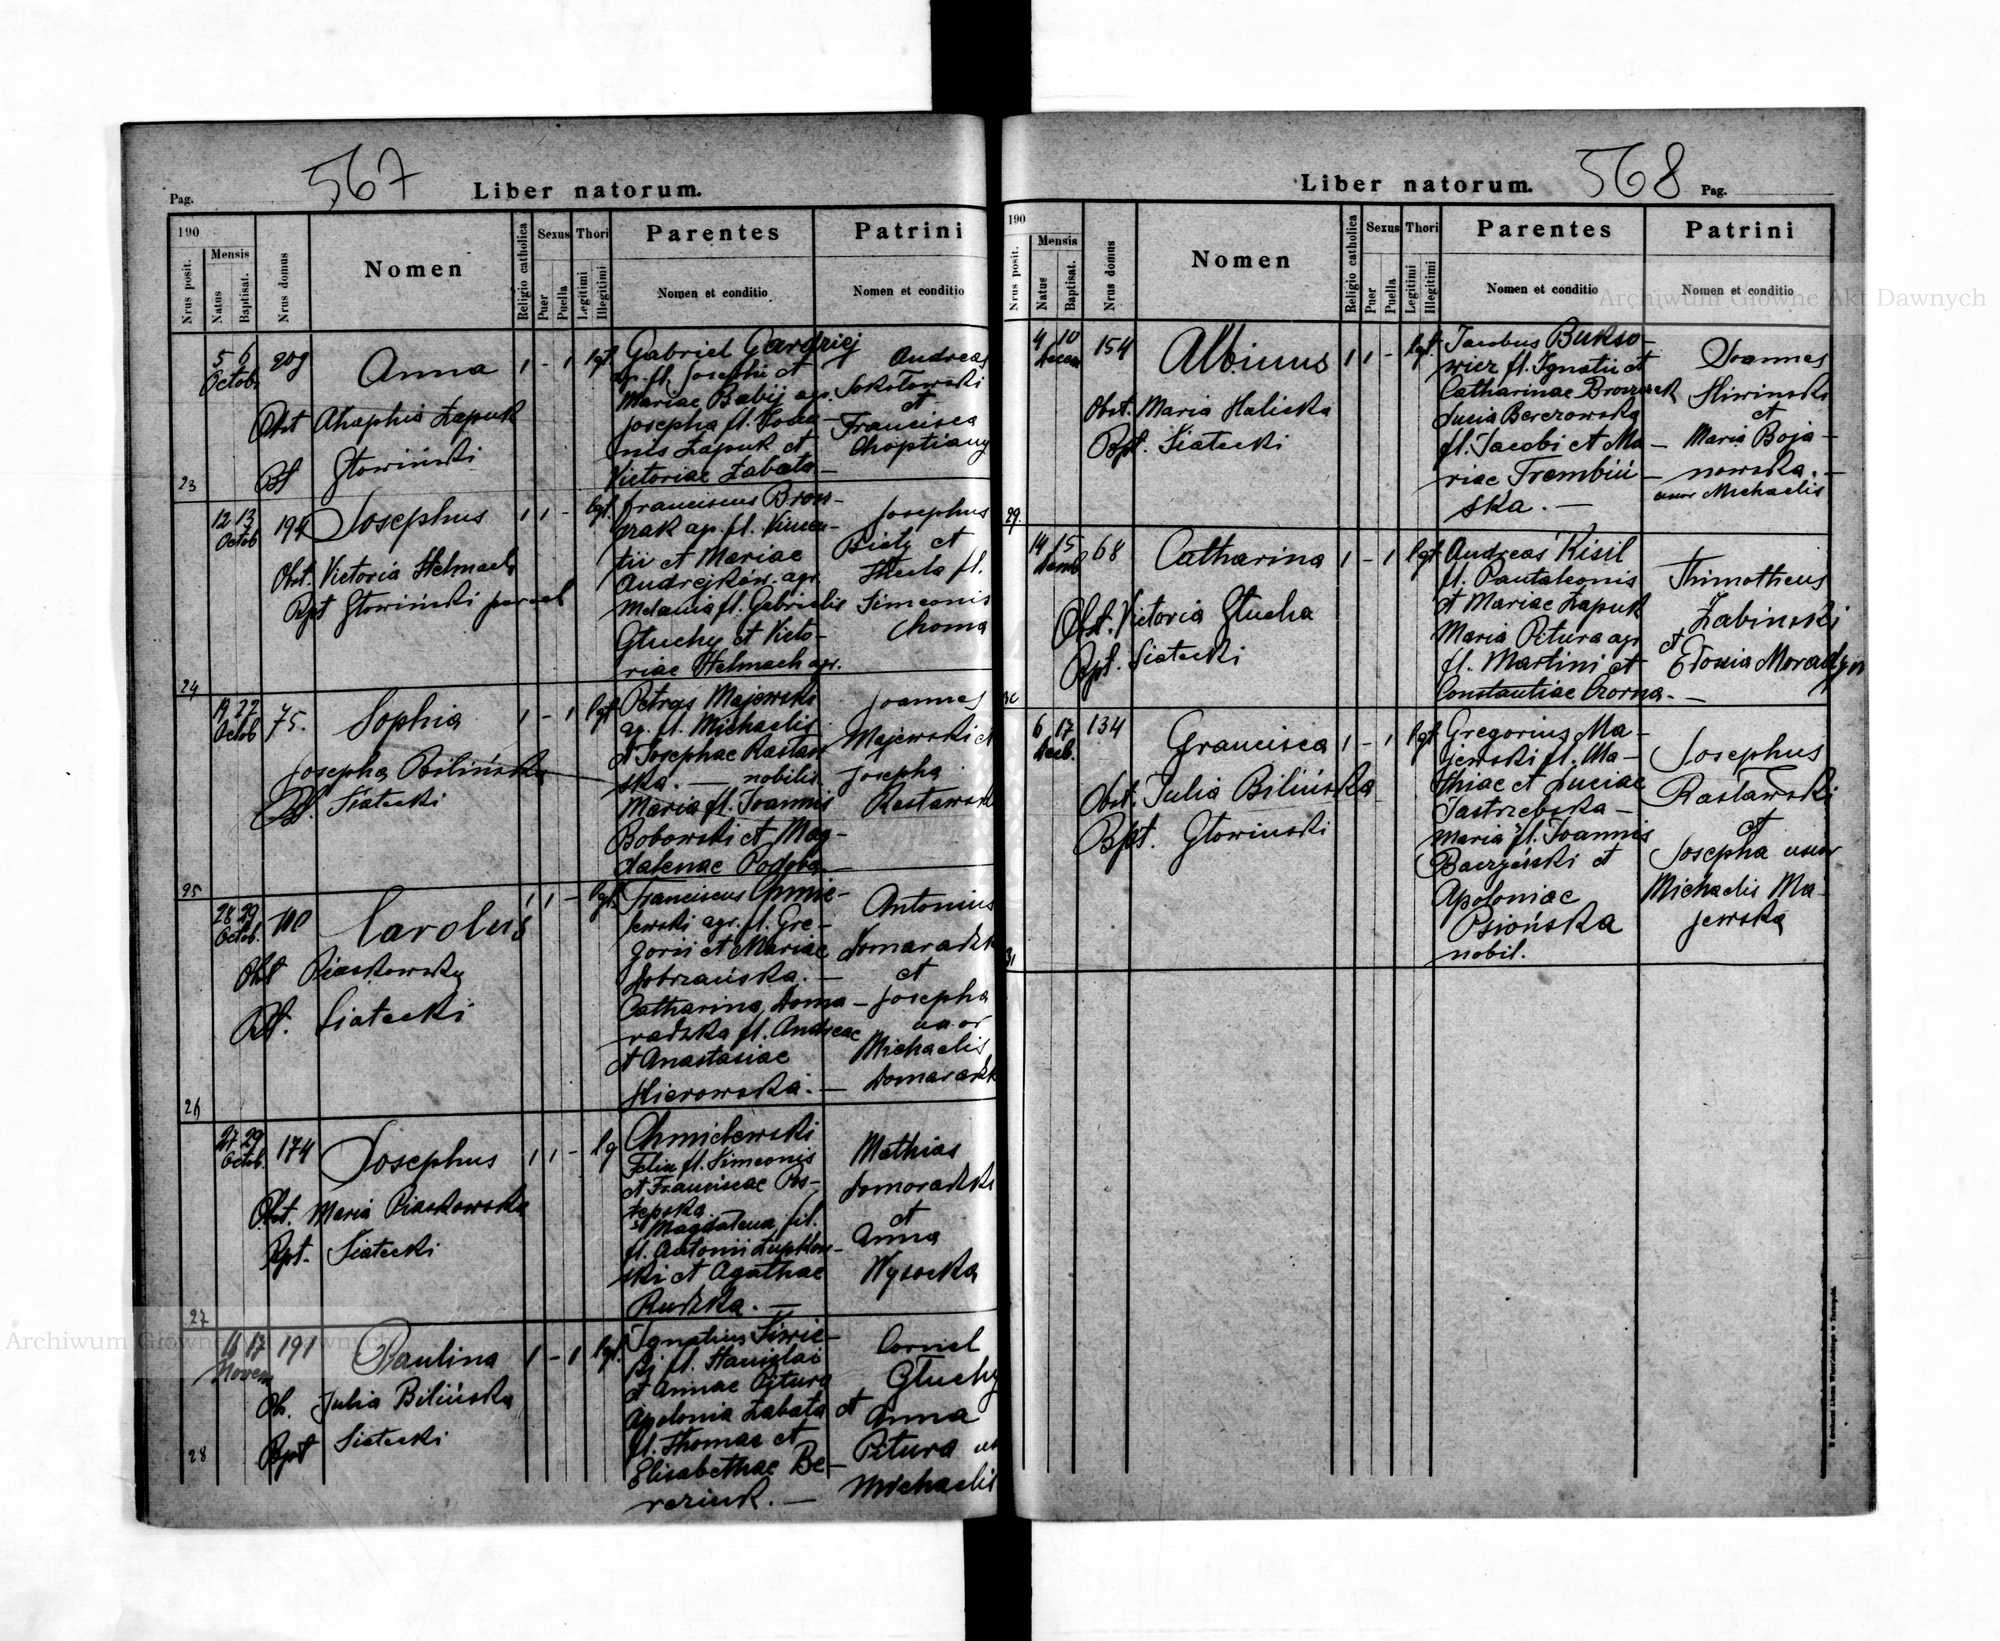 567
Liber natorum.
Pag.
190
Nrus posit.
Mensis
Natus
Baptisat.
Nrus domus
Nomen
Religio catholica
Sexus
Puer
Puella
Thori
Legitimi
Illegitimi
Parentes
Nomen et conditio
Patrini
Nomen et conditio
23
5 6
Octob
209
Anna
1 - 1 lgt
Obst Ahaphia Łapuk
Bpt Głowiński
Gabriel Gawdziej
ap. fl. Josephi et
Mariae Babij agr.
Josepha fl. Joan-
nis Łapuk et
Victoriae Łabata
Andreas
Sokołowski
et
Francisca
Choptiany
24
12 13
Octob
194
Josephus
1 1 - lgt
Obst. Victoria Helmach
Bpt Głowiński
Franciscus Bron-
ap. fl. Vincen-
tii et Mariae
Andrejków. agr.
Melania fl. Gabrielis
Głuchy et Victo-
riae Helmach agr.
Josephus
Biały et
Thecla fl.
Simeonis
Choma
25
19 22
Octob
75.
Sophia
1 - 1 lgt
Josepha Bilińska
Bpt. Siatecki
Petrus Majewski
ap. fl. Michaelis
et Josephae Rastaw
ska. — nobilis
Maria fl. Joannis
Bobowski et Mag-
dalenae Podoba
Joannes
Majewski et
Josepha
Rastawsk
26
28 29
Octob.
110
Carolus
1 1 - lgt
Obst Piaskowska
Bpt. Siatecki
Franciscus Chmie-
lewski agr. fl. Gre-
gorii et Mariae
Dobrzańska. —
Catharina Doma-
radzka fl. Andreae
et Anastasiae
Hierowska. —
Antonius
Domaradzk
et
Josepha
uxor
Michaelis
Domaradzk
27
27 29
Octob.
174
Josephus
1 1 - lg
Obst. Maria Piaskowska
Bpt. Siatecki
Chmielewski
Felix fl. Simeonis
et Franciscae Pos-
tepska.
et Magdalena fil.
fl. Antonii Łupkow-
ski et Agathae
Rudzka. —
Mathias
Domoradzki
et
Anna
Wysocka
28
16 17
Novem
191
Paulina
1 - 1 lgt.
Ob. Julia Bilińska
Bpt Siatecki
Ignatius
fl. Stanislai
et Annae Pitura
Apolonia Łabata
fl. Thomae et
Elisabethae Be-
reziuk. —
Cornel
Głuchy
et Anna
Pitura ux
Michaelis
Liber natorum.
568
Pag.
190
Nrus posit.
Mensis
Natus
Baptisat.
Nrus domus
Nomen
Religio catholica
Sexus
Puer
Puella
Thori
Legitimi
Illegitimi
Parentes
Nomen et conditio
Patrini
Nomen et conditio
29.
4 10
Decem
154
Albinus
1 1 - lgt.
Obst. Maria Haliska
Bpt. Siatecki
Jacobus Bukso-
wicz fl. Ignatii et
Catharinae
Lucia Berezowska
fl. Jacobi et Ma-
riae Trembiń-
ska. —
Joannes
Sliwinski
et
Maria Boja-
nowska. —
uxor Michaelis
30
14 15
Decemb
68
Catharina
1 - 1 lgt
Obst. Victoria Głucha
Bpt. Siatecki
Andreas Kisil
fl. Pantaleonis
et Mariae Łapuk
Maria Pitura agr
fl. Martini et
Constantiae Czorna. —
Thimotheus
Żabinski
et
Moradyn
31
6 17
Decb.
134
Francisca
1 - 1 lgt
Obst. Julia Bilińska
Bpt. Głowinski
Gregorius Ma-
jewski fl. Ma-
thiae et Luciae
Jastrzebska —
Maria fl. Joannis
Baczyński et
Apoloniae
Psiońska
nobil.
Josephus
Rastawski
et
Josepha uxor
Michaelis Ma-
jewska
Archiwum Główne Akt Dawnych
Archiwum Główne Akt Dawnych